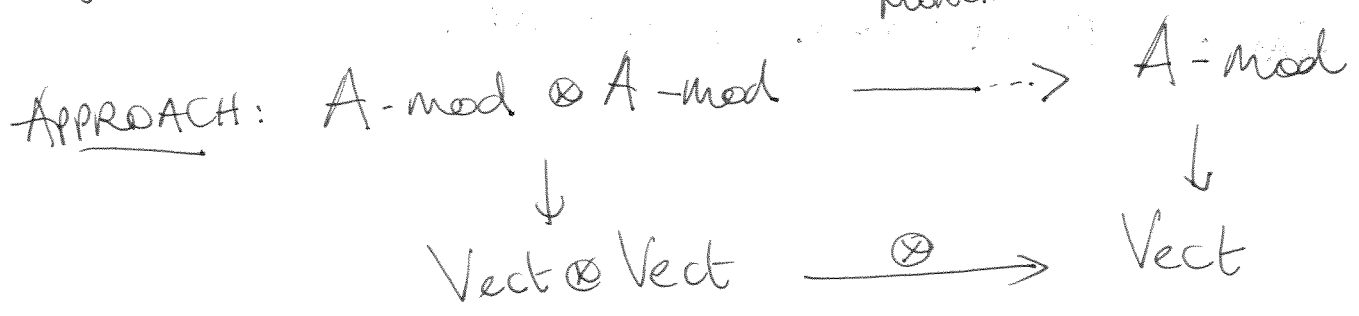 APPROACH: A-mod ⊗ A-mod ⇢ A-mod
↓ ↓
⊗
Vect ⊗ Vect → Vect